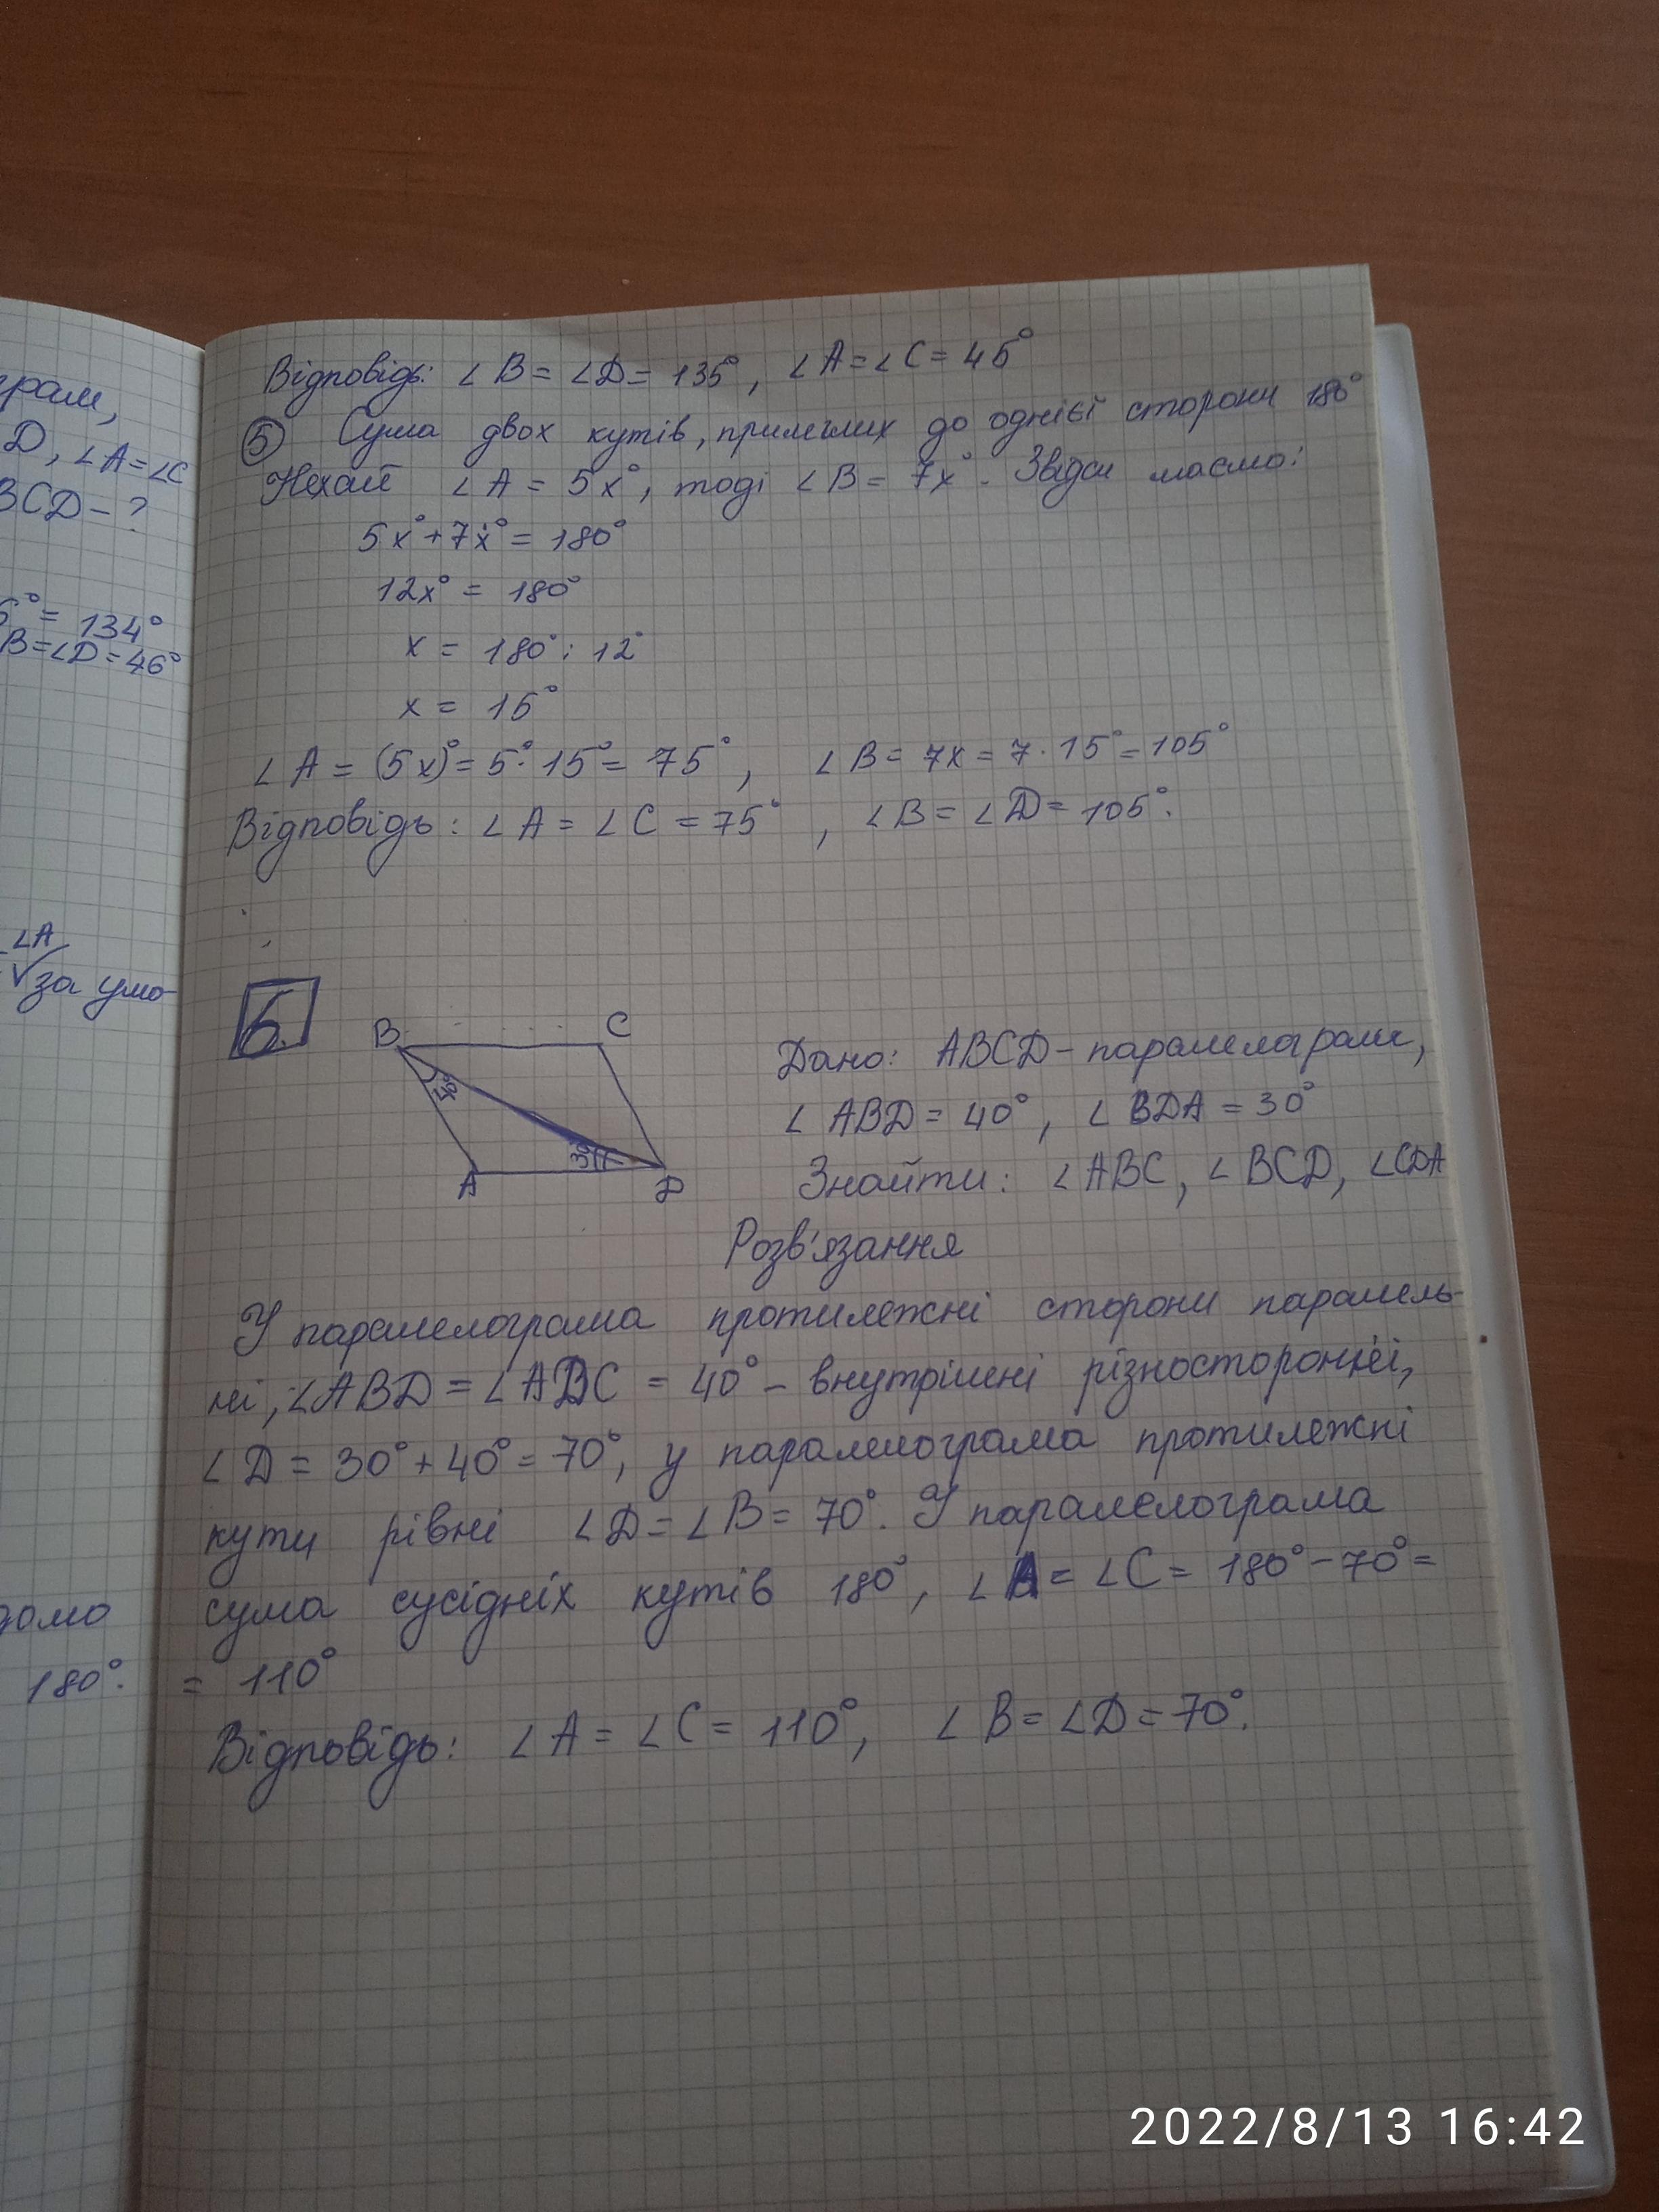 грам,
D, ∠A=∠C
BCD - ?
6° = 134°
B=∠D=46°
∠A
за умо-
домо
180°.
Відповідь: ∠B = ∠D = 135°, ∠A = ∠C = 45°
5 Сума двох кутів, прилеглих до однієї сторони 180°
Нехай ∠A = 5x°, тоді ∠B = 7x°. Звідси маємо:
5x° + 7x° = 180°
12x° = 180°
x = 180° : 12°
x = 15°
∠A = (5x)° = 5° · 15° = 75°, ∠B = 7x = 7 · 15° = 105°
Відповідь: ∠A = ∠C = 75°, ∠B = ∠D = 105°.
6.
B C
40°
30°
A D
Дано: ABCD - паралелограм,
∠ABD = 40°, ∠BDA = 30°
Знайти: ∠ABC, ∠BCD, ∠CDA
Розв'язання
У паралелограма протилежні сторони паралель-
ні, ∠ABD = ∠ABC = 40° - внутрішні різносторонні,
∠D = 30° + 40° = 70°, у паралелограма протилежні
кути рівні ∠D = ∠B = 70°. У паралелограма
сума сусідніх кутів 180°, ∠A = ∠C = 180° - 70° =
= 110°
Відповідь: ∠A = ∠C = 110°, ∠B = ∠D = 70°.
2022/8/13 16:42